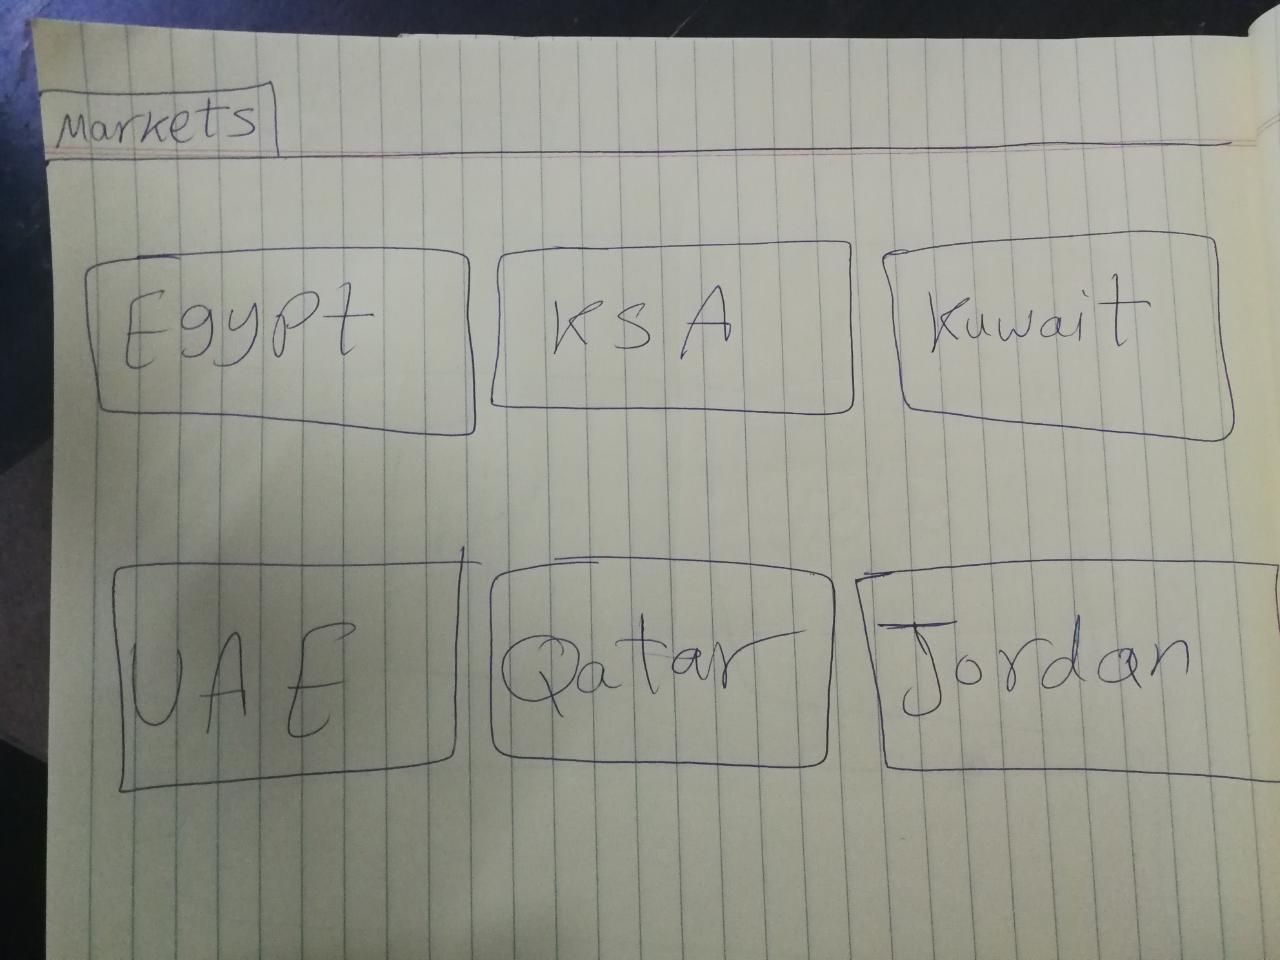 Markets
Egypt
KSA
Kuwait
UAE
Qatar
Jordan